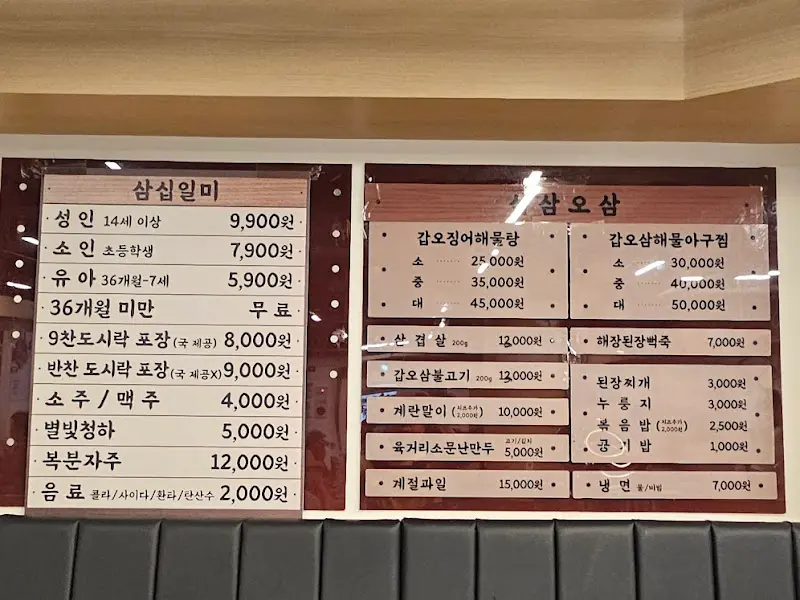 삼십일미
성인 14세 이상 9,900원
소인 초등학생 7,900원
유아 36개월-7세 5,900원
36개월 미만 무료
9찬도시락 포장 (국 제공) 8,000원
반찬 도시락 포장 (국 제공X) 9,000원
소주/맥주 4,000원
별빛청하 5,000원
복분자주 12,000원
음료 콜라/사이다/환타/탄산수 2,000원
삼오삼
갑오징어해물탕
소 ······ 25,000원
중 ······ 35,000원
대 ······ 45,000원
갑오삼해물아구찜
소 ······ 30,000원
중 ······ 40,000원
대 ······ 50,000원
산겹살 200g
갑오삼불고기 200g
계란말이 (치즈추가 2,000원) 10,000원
육거리소문난만두 고기/김치 5,000원
계절과일 15,000원
해장된장뻑죽 7,000원
된장찌개 3,000원
누룽지 3,000원
볶음밥 (치즈추가 2,000원) 2,500원
공기밥 1,000원
냉면 물/비빔 7,000원